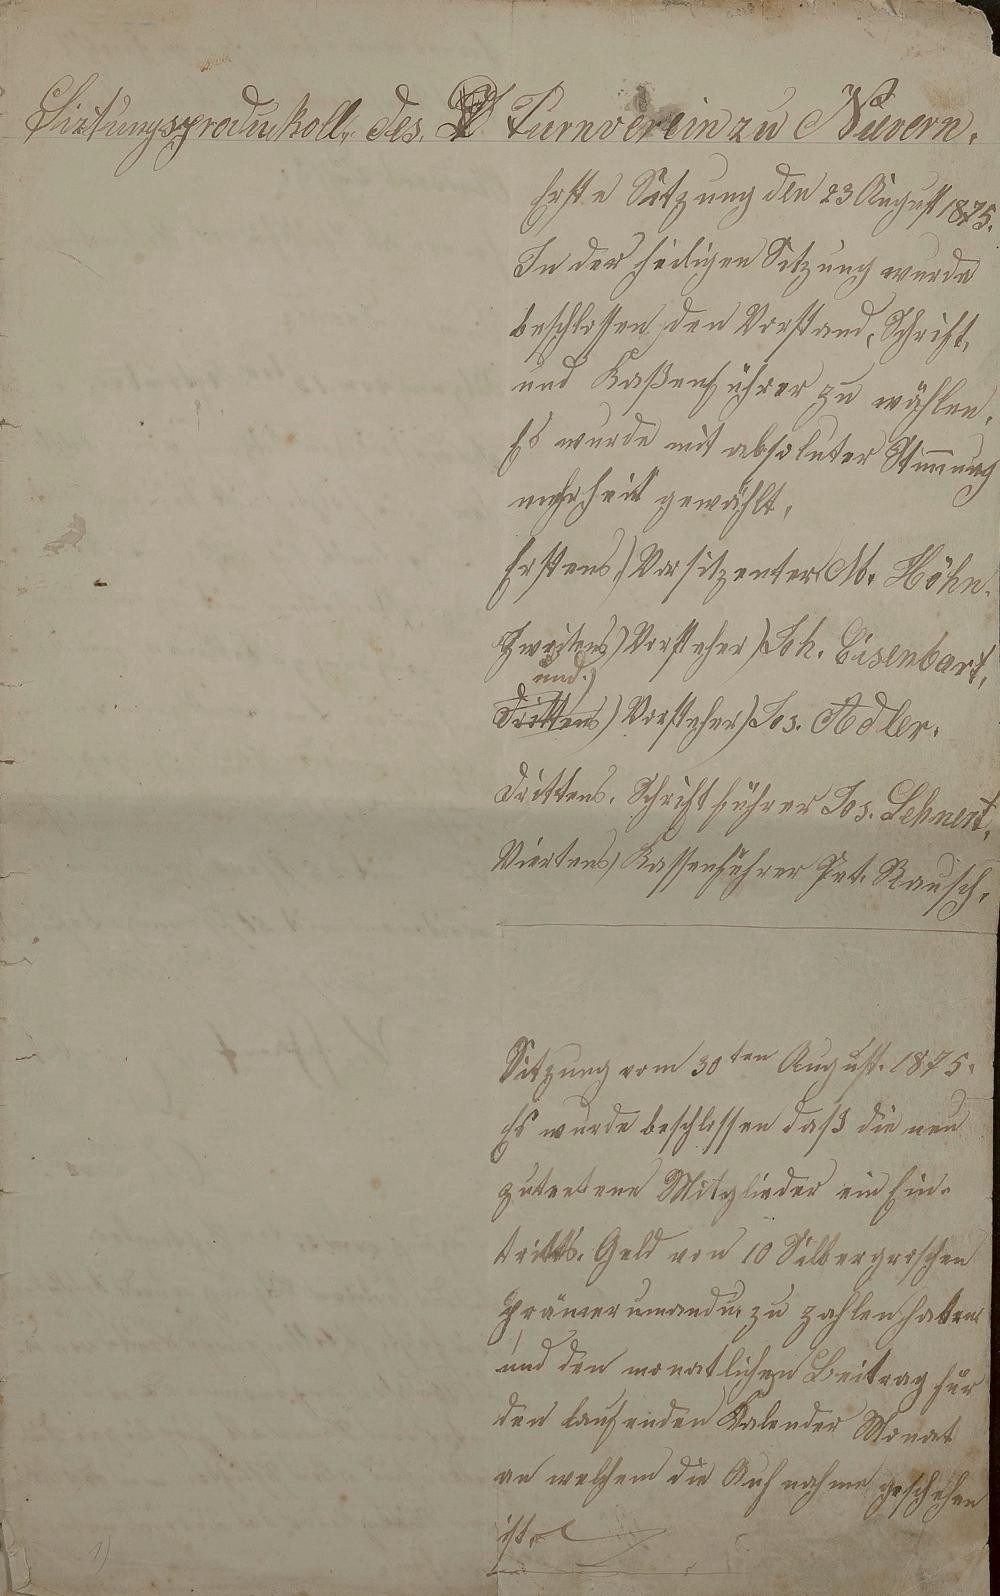 Siztungsproduckoll, des. Turnverein zu Nievern.
Erste Sitzung den 23 August 1875.
In der heiligen Sitzung wurde
beschlossen den Vorstand, Schrift,
und Kaßenführer zu wählen.
Es wurde mit absoluter Stimmung
mehrheit gewählt,
Erstens) Vorsitzenter M. Höhn.
Zweitens) Vorsteher) Joh. Eisenbart,
und.)
Drittens) Vorsteher) Jos. Adler.
Drittens. Schriftführer Jos. Lehnert,
Viertens) Kassenführer Pet. Rausch,
Sitzung vom 30ten August. 1875.
Es wurde beschlossen daß die neu
zutretene Mitglieder ein Ein-
tritts. Geld von 10 Silbergroschen
pränumerandu, zu zahlen haben
und den monatlichen Beitrag für
den laufenden Kalender Monat
an welchem die Aufnahme geschehen
ist.
1)